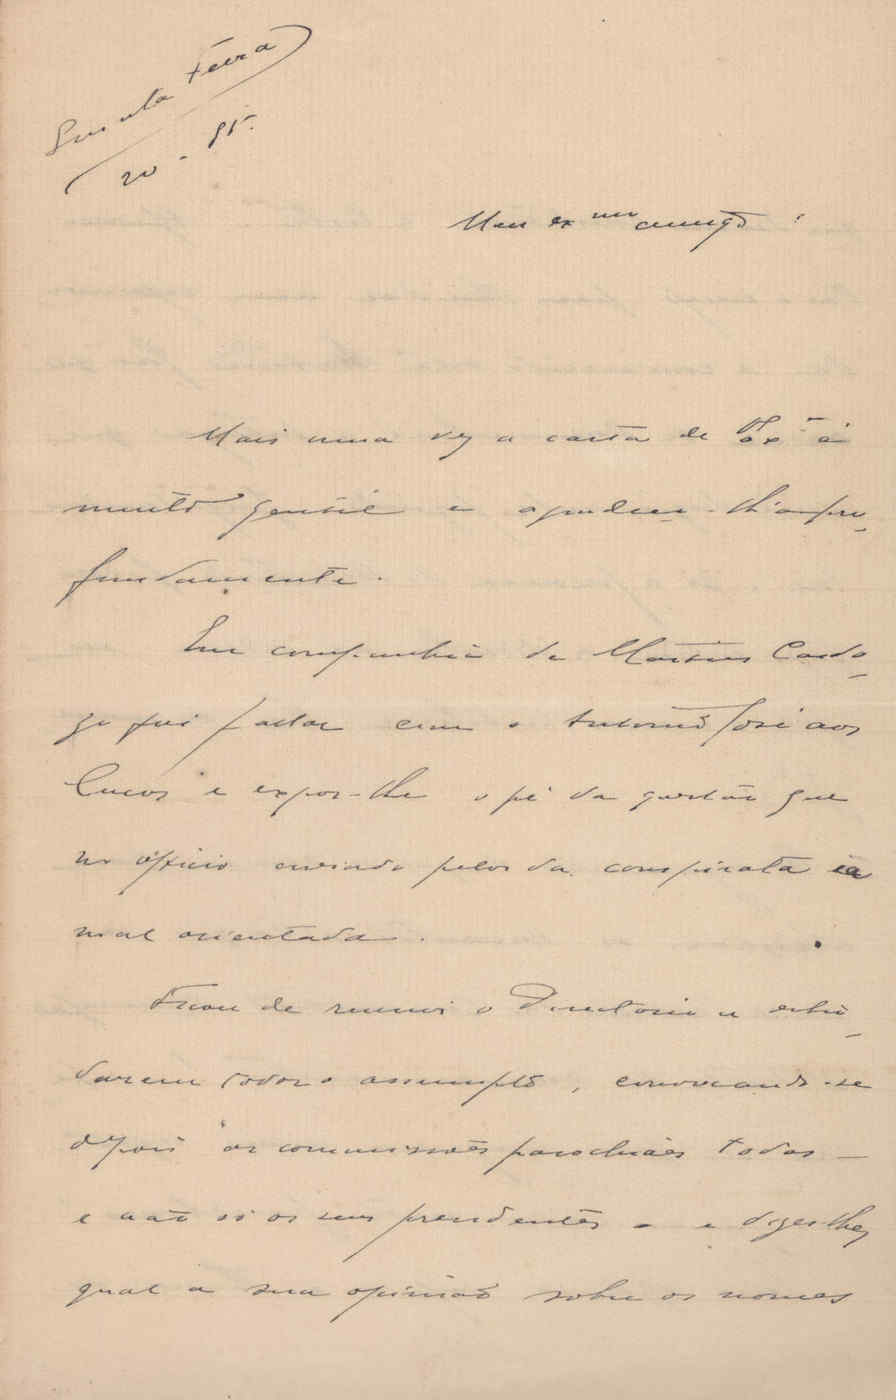 Quinta Feira
20 -
Meu exmo amigo :
Mais uma vez a carta de V Exª é
muito gentil e agradeço-lh'a pro-
fundamente.
Em companhia de Martins Cardo-
so fui fallar com o Antonio José aos
e expor-lhe o pé da questão que
no officio enviado pelos da conspirata ia
mal orientada.
Ficou de reunir o Directorio e estu-
darem todos o assumpto, convocando-se
depois as commissões parochiaes todas —
e não só os seus presidentes — e dizer-lhes
qual a sua opinião sobre os nomes